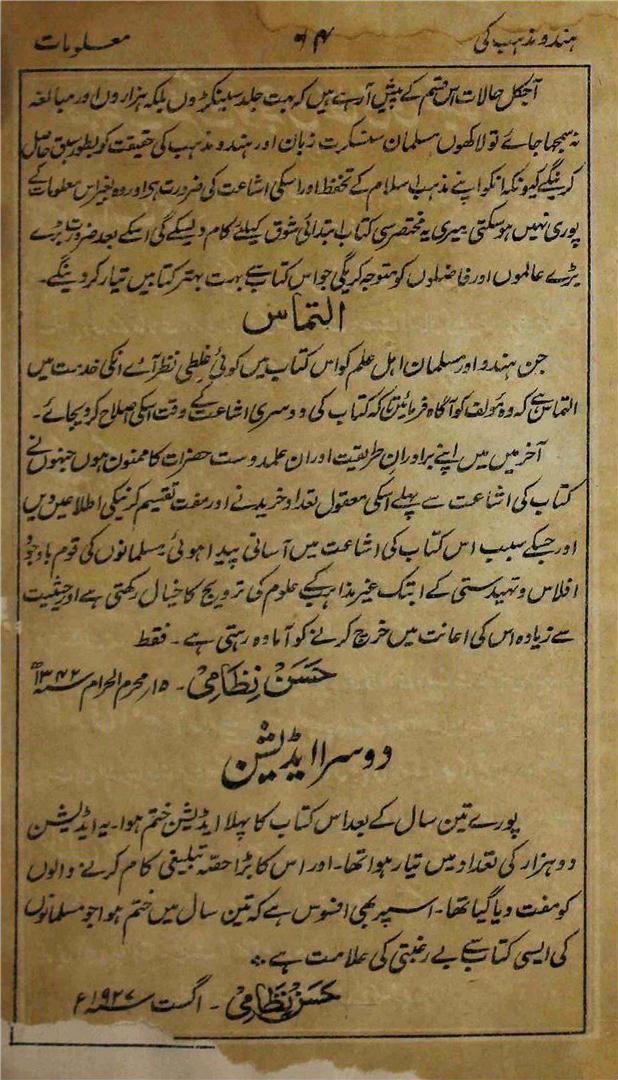 ہندو مذہب کی ۶۴ معلومات
آجکل حالات اس قسم کے پیش آ رہے ہیں کہ بہت جلد سینکڑوں بلکہ ہزاروں اور مبالغہ
نہ سمجھا جائے تو لاکھوں مسلمان سنسکرت زبان اور ہندو مذہب کی حقیقت کو بطور سبق حاصل
کرینگے کیونکہ انکو اپنے مذہب اسلام کے تحفظ اور اسکی اشاعت کی ضرورت ہے اور وہ بغیر اس معلومات کے
پوری نہیں ہو سکتی میری یہ مختصر سی کتاب ابتدائی شوق کیلئے کام دیسکے گی اسکے بعد ضرورت بڑے
بڑے عالموں اور فاضلوں کو متوجہ کریگی جو اس کتاب سے بہت بہتر کتابیں تیار کر دینگے۔
التماس
جن ہندو اور مسلمان اہل علم کو اس کتاب میں کوئی غلطی نظر آئے انکی خدمت میں
التماس ہے کہ وہ مؤلف کو آگاہ فرمائیں تاکہ کتاب کی دوسری اشاعت کے وقت اسکی اصلاح کر دیجائے۔
آخر میں میں اپنے برادران طریقیت اور ان علمدوست حضرات کا ممنون ہوں جنہوں نے
کتاب کی اشاعت سے پہلے اسکی معقول تعداد خریدنے اور مفت تقسیم کرنیکی اطلاعیں دیں
اور جسکے سبب اس کتاب کی اشاعت میں آسانی پیدا ہوئی مسلمانوں کی قوم باوجود
افلاس و تہیدستی کے ابتک غیر مذاہب کے علوم کی ترویج کا خیال رکھتی ہے اور حیثیت
سے زیادہ اس کی اعانت میں خرچ کرنے کو آمادہ رہتی ہے۔ فقط
حسن نظامی۔ ۱۵ محرم الحرام سنہ ۱۳۴۲ھ
دوسرا ایڈیشن
پورے تین سال کے بعد اس کتاب کا پہلا ایڈیشن ختم ہوا۔ یہ ایڈیشن
دو ہزار کی تعداد میں تیار ہوا تھا۔ اور اس کا بڑا حصہ تبلیغی کام کرنے والوں
کو مفت دیا گیا تھا۔ اسپر بھی افسوس ہے کہ تین سال میں ختم ہوا جو مسلمانوں
کی ایسی کتاب سے بے رغبتی کی علامت ہے
حسن نظامی۔ اگست سنہ ۱۹۲۷ء